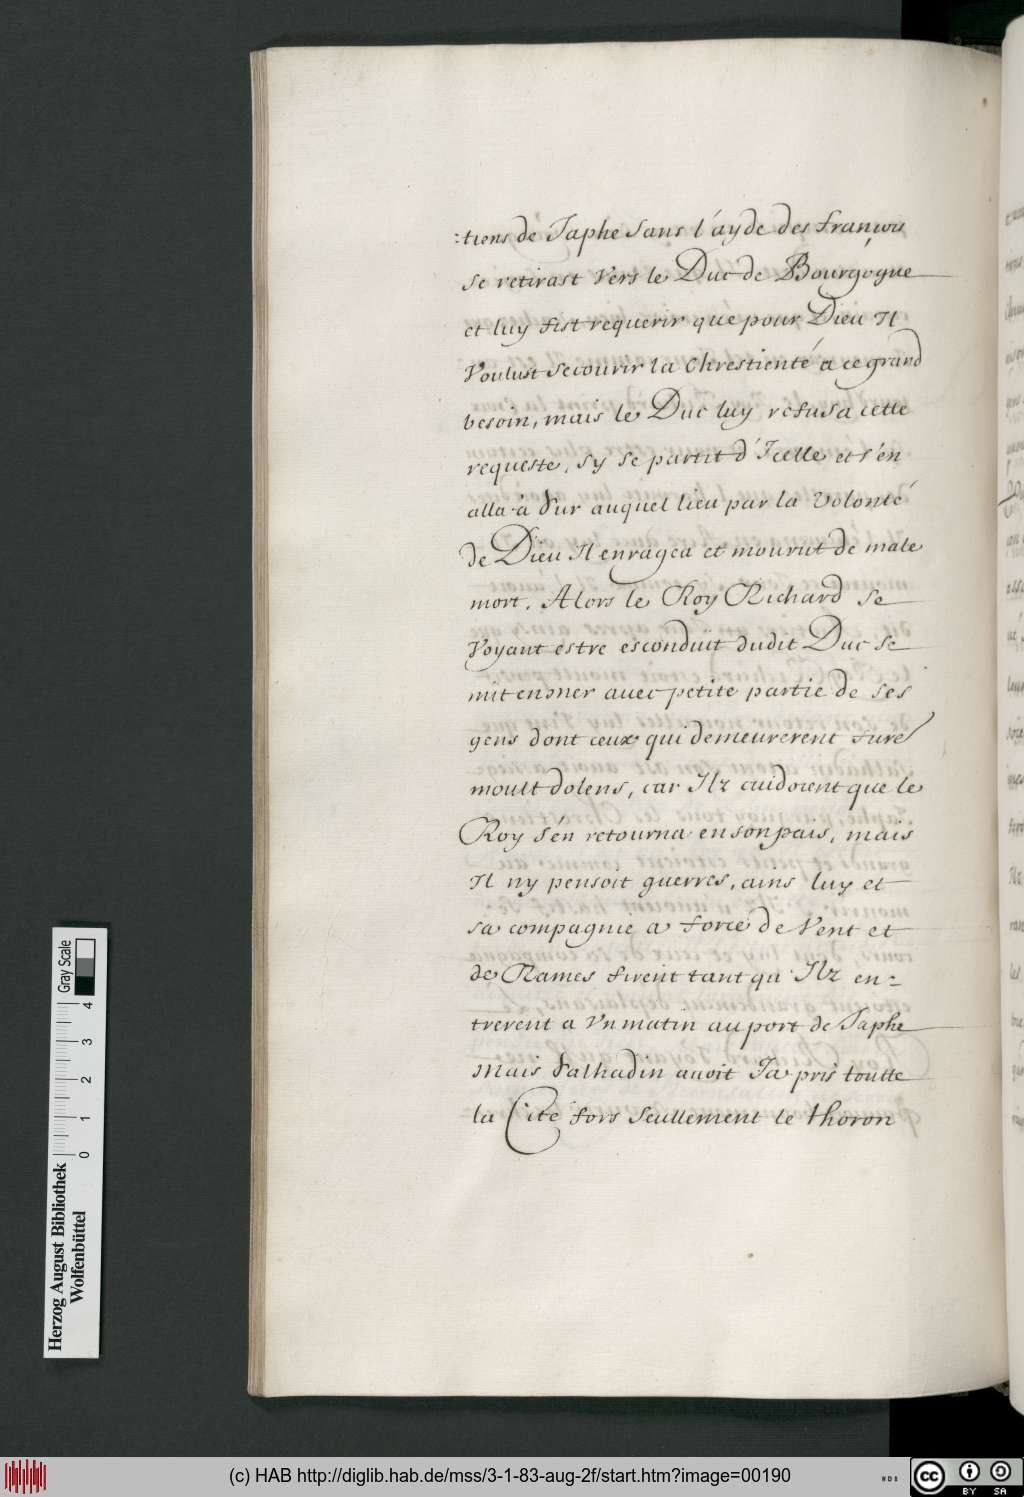 :tiens de Japhe sans l'ayde des françois
se retirast vers le Duc de Bourgogne
et luy fist requerir que pour Dieu Il
voulust secourir la chrestienté a ce grand
besoin, mais le Duc luy refusa cette
requeste, sy se partit d'Icelle et s'en
alla à Sur auquel lieu par la volonté
de Dieu Il enragea et mourut de male
mort. Alors le Roy Richard se
voyant estre esconduit dudit Duc se
mit en mer avec petite partie de ses
gens dont ceux qui demeurerent fure
moult dolens, car Ilz cuidoient que le
Roy s'en retourna en son pais, mais
Il ny pensoit guerres, ains luy et
sa compagnie a force de vent et
de Rames firent tant qu'Ilz en-
trerent a un matin au port de Japhe
Mais Salhadin avoit Ja pris toutte
la Cité fors seullement le thoron
Gray Scale
0 1 2 3 4
Herzog August Bibliothek
Wolfenbüttel
(c) HAB http://diglib.hab.de/mss/3-1-83-aug-2f/start.htm?image=00190
WDB
cc BY SA